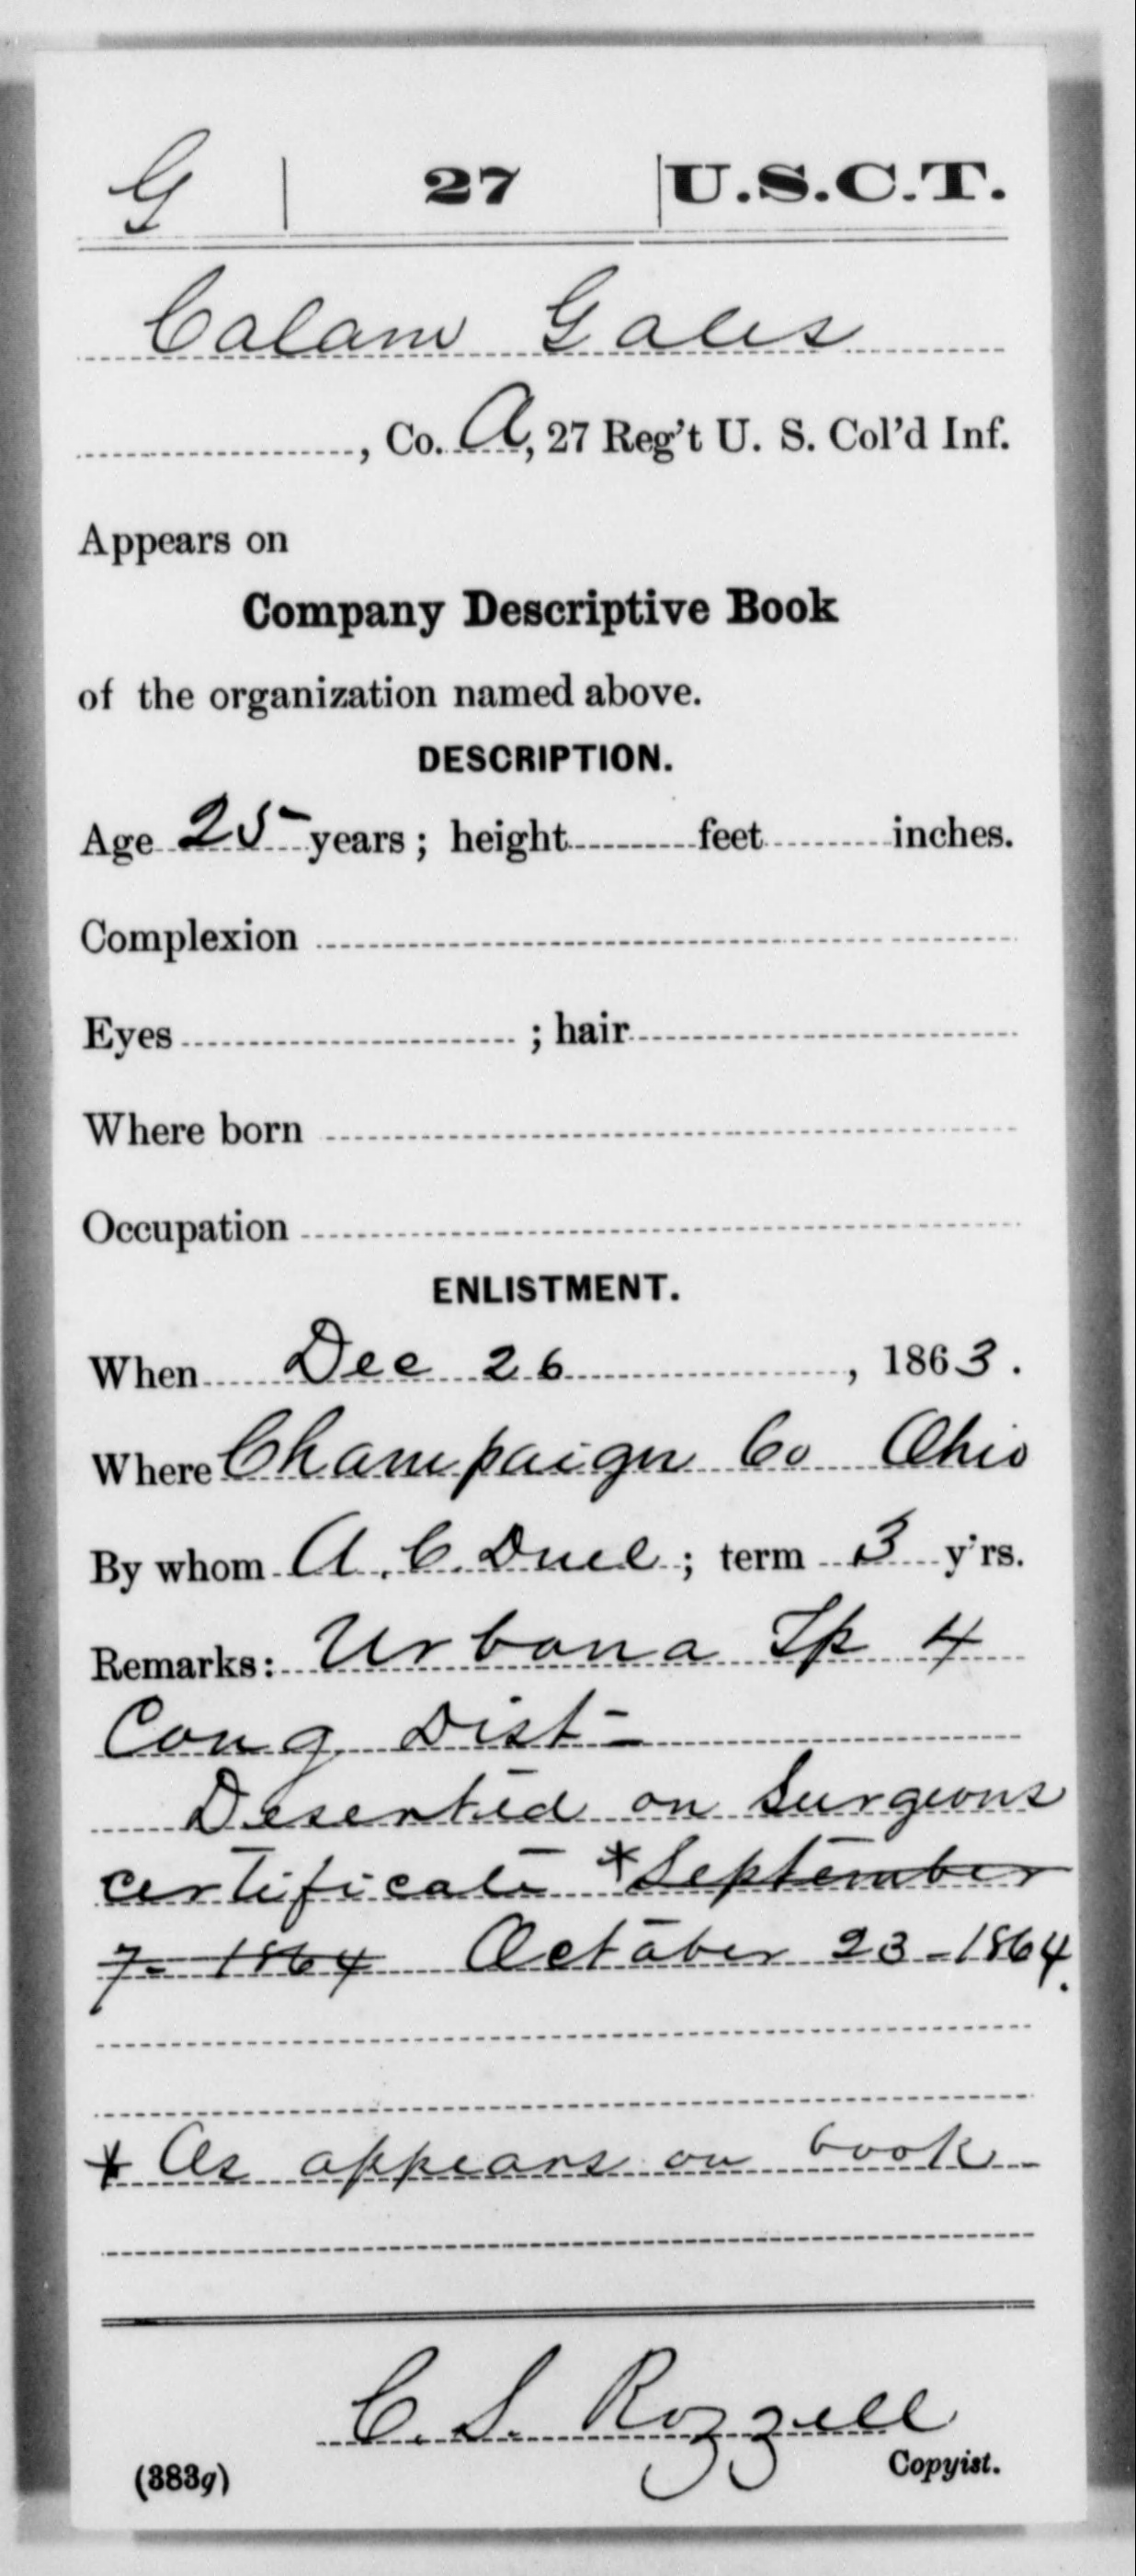 G | 27 | U.S.C.T.
Calam Gales
, Co. A, 27 Reg't U. S. Col'd Inf.
Appears on
Company Descriptive Book
of the organization named above.
DESCRIPTION.
Age 25 years; height feet inches.
Complexion
Eyes ; hair
Where born
Occupation
ENLISTMENT.
When Dec 26, 1863.
Where Champaign Co Ohio
By whom A. C. Duel; term 3 y'rs.
Remarks: Urbana Tp 4
Cong Dist-
Deserted on Surgeons
certificate *September
7- 1864 October 23-1864.
* As appears on book
C. S. Rozzell
(383g) Copyist.